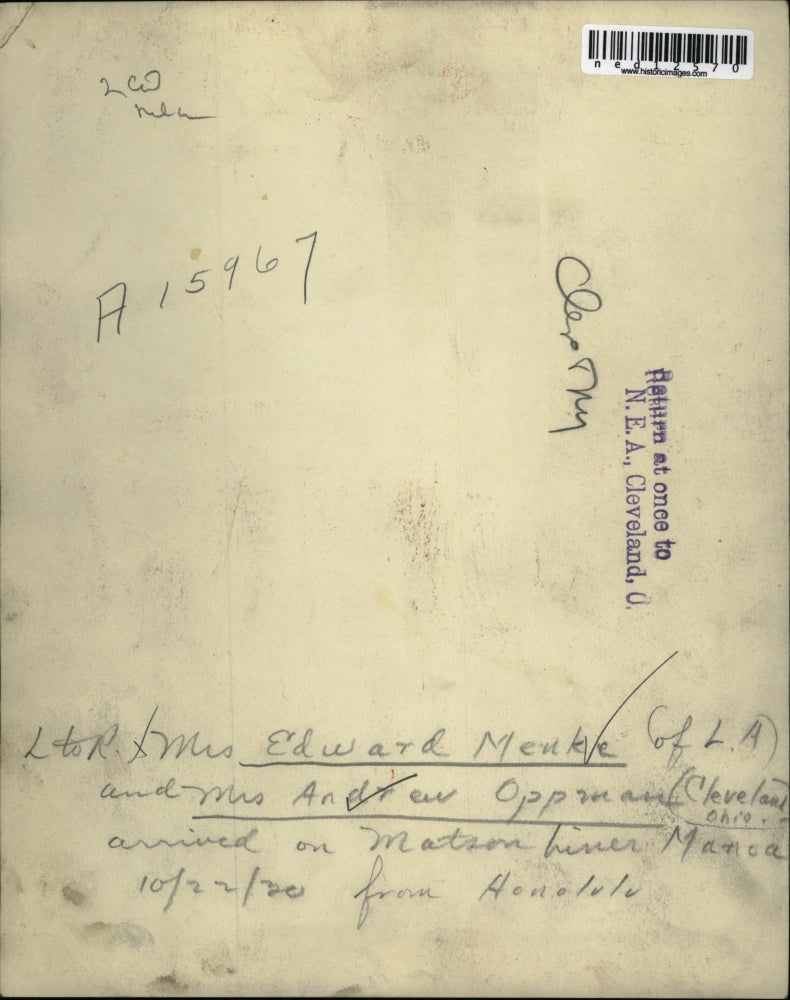 ned12570
www.historicimages.com
A 15967
Return at once to
N. E. A., Cleveland, O.
L to R. Mrs Edward Menke (of L.A)
and Mrs Andrew Oppman (Cleveland
Ohio.
arrived on Matson liner Manoa
from Honolulu